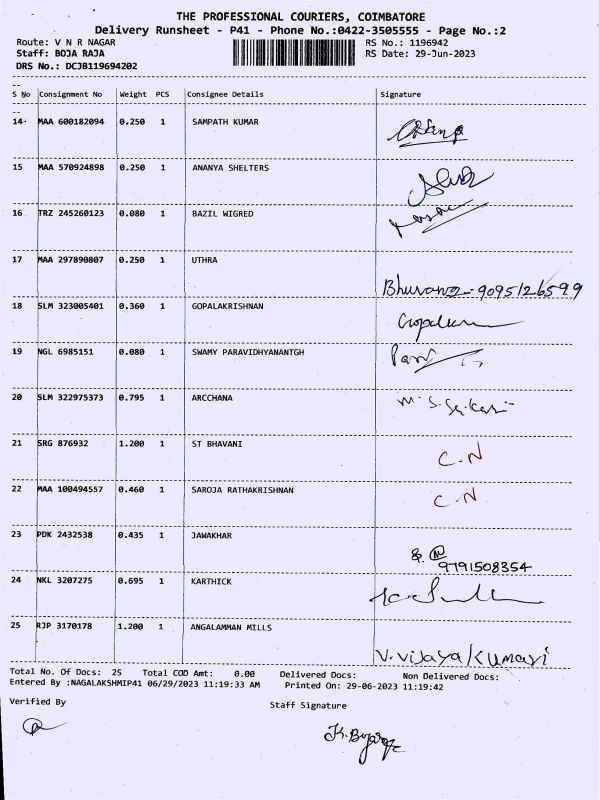 THE PROFESSIONAL COURIERS, COIMBATORE
Delivery Runsheet - P41 - Phone No.:0422-3505555 - Page No.:2
Route: V N R NAGAR RS No.: 1196942
Staff: BOJA RAJA RS Date: 29-Jun-2023
DRS No.: DCJB119694202
S No Consignment No Weight PCS Consignee Details Signature
14 MAA 600182094 0.250 1 SAMPATH KUMAR
15 MAA 570924898 0.250 1 ANANYA SHELTERS
16 TRZ 245260123 0.080 1 BAZIL WIGRED
17 MAA 297890807 0.250 1 UTHRA
Bhuvana - 9095126599
18 SLM 323005401 0.360 1 GOPALAKRISHNAN
19 NGL 6985151 0.080 1 SWAMY PARAVIDHYANANTGH
20 SLM 322975373 0.795 1 ARCCHANA
21 SRG 876932 1.200 1 ST BHAVANI
C.N
22 MAA 100494557 0.460 1 SAROJA RATHAKRISHNAN
C.N
23 PDK 2432538 0.435 1 JAWAKHAR
9791508354
24 NKL 3207275 0.695 1 KARTHICK
25 RJP 3170178 1.200 1 ANGALAMMAN MILLS
V.Vijaya Kumari
Total No. Of Docs: 25 Total COD Amt: 0.00 Delivered Docs: Non Delivered Docs:
Entered By :NAGALAKSHMIP41 06/29/2023 11:19:33 AM Printed On: 29-06-2023 11:19:42
Verified By Staff Signature